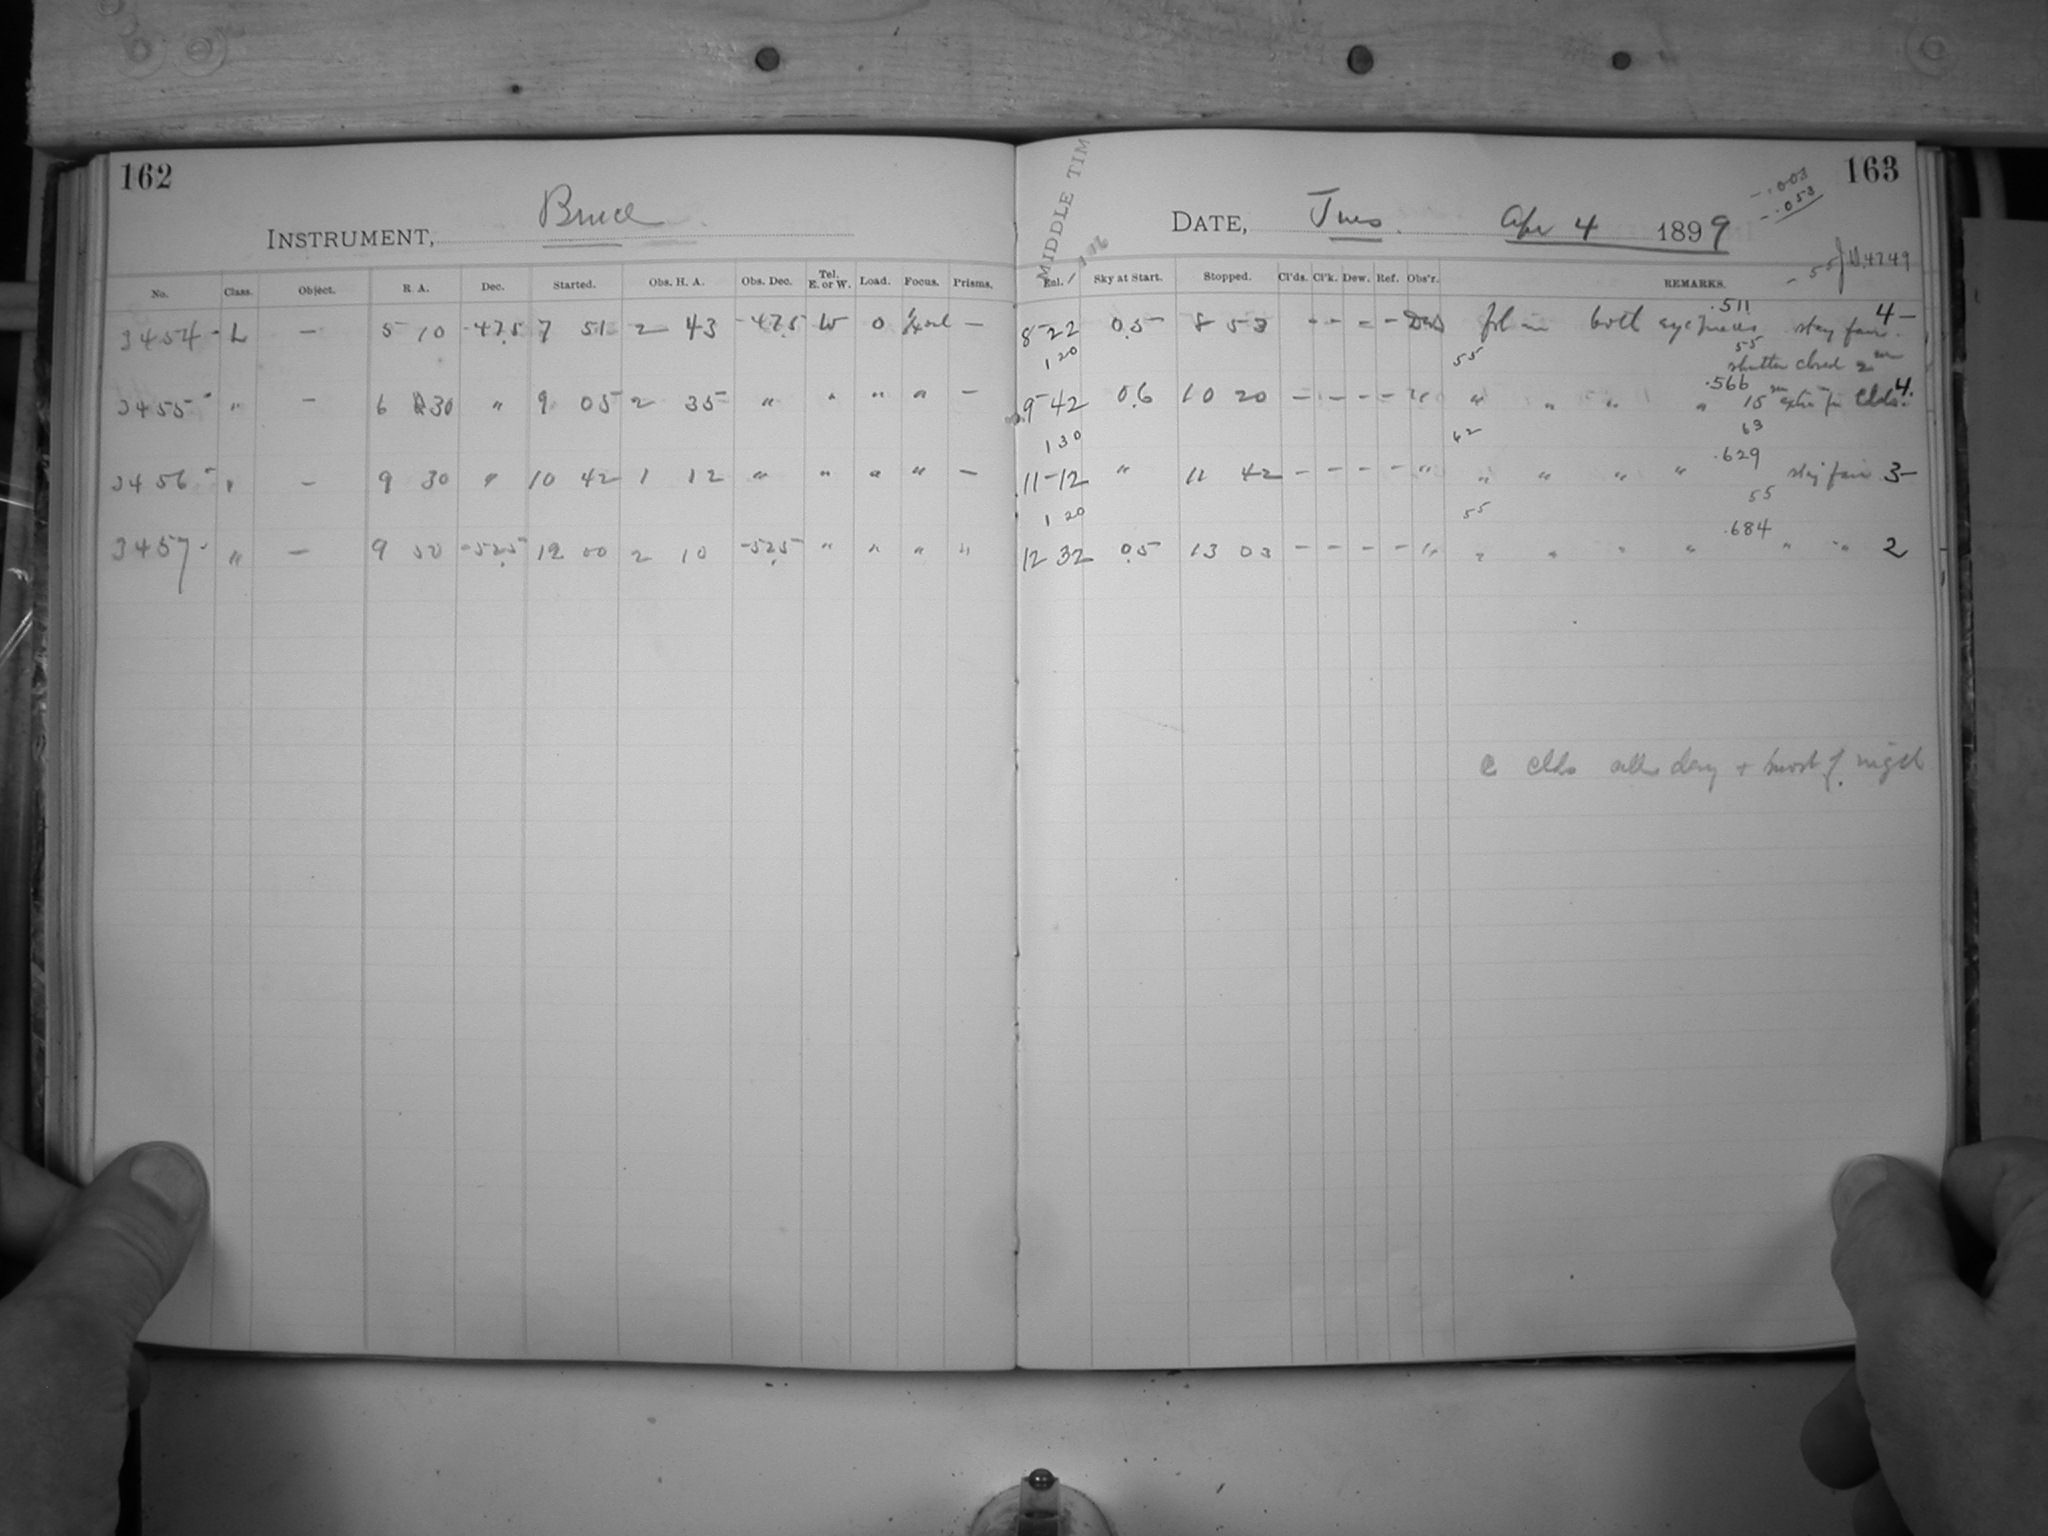 162
INSTRUMENT, Bruce
No. Class. Object. R. A. Dec. Started. Obs. H. A. Obs. Dec. Tel. E. or W. Load. Focus. Prisms.
3454 - L — 5 10 -47.5 7 51 2 43 -47.5 W 0 —
3455 - " — 6 30 " 9 05 2 35 " " " " —
3456 - " — 9 30 " 10 42 1 12 " " " " —
3457 - " — 9 50 -52.5 12 00 2 10 -52.5 " " " "
163
MIDDLE TIM
-.003
-.053
DATE, Tues. Apr 4 1899
J.D. 4749
- 55
Enl. Sky at Start. Stopped. Cl'ds. Cl'k. Dew. Ref. Obs'r. REMARKS.
.511
8-22 0.5 8 53 - - - - in both eyepieces stay fair. 4-
1 20 55 55
shutter closed 2m
.566
9-42 0.6 10 20 - - - - " " " " " 15m extra for Clds. 4.
1 30 62 63
.629
11-12 " 11 42 - - - - " " " " " stay fair 3-
1 20 55 55
.684
12 32 0.5 13 03 - - - - " " " " " " " 2
C Clds all day + most of night